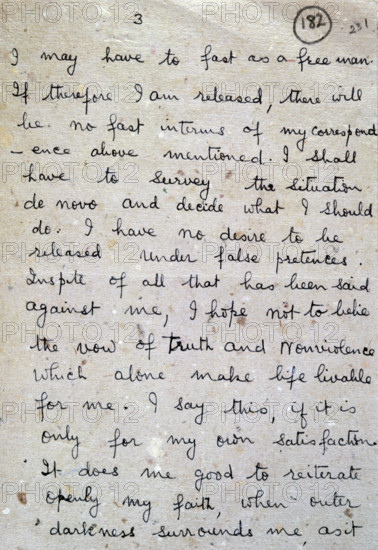 3
182
231
I may have to fast as a free man.
If therefore I am released, there will
be no fast interms of my correspond
-ence above mentioned. I shall
have to survey the situation
de novo and decide what I should
do. I have no desire to be
released under false pretences.
Inspite of all that has been said
against me, I hope not to belie
the vow of truth and Nonviolence
which alone make life livable
for me. I say this, if it is
only for my own satisfaction.
It does me good to reiterate
openly my faith, when outer
darkness surrounds me, as it
PHOTO12